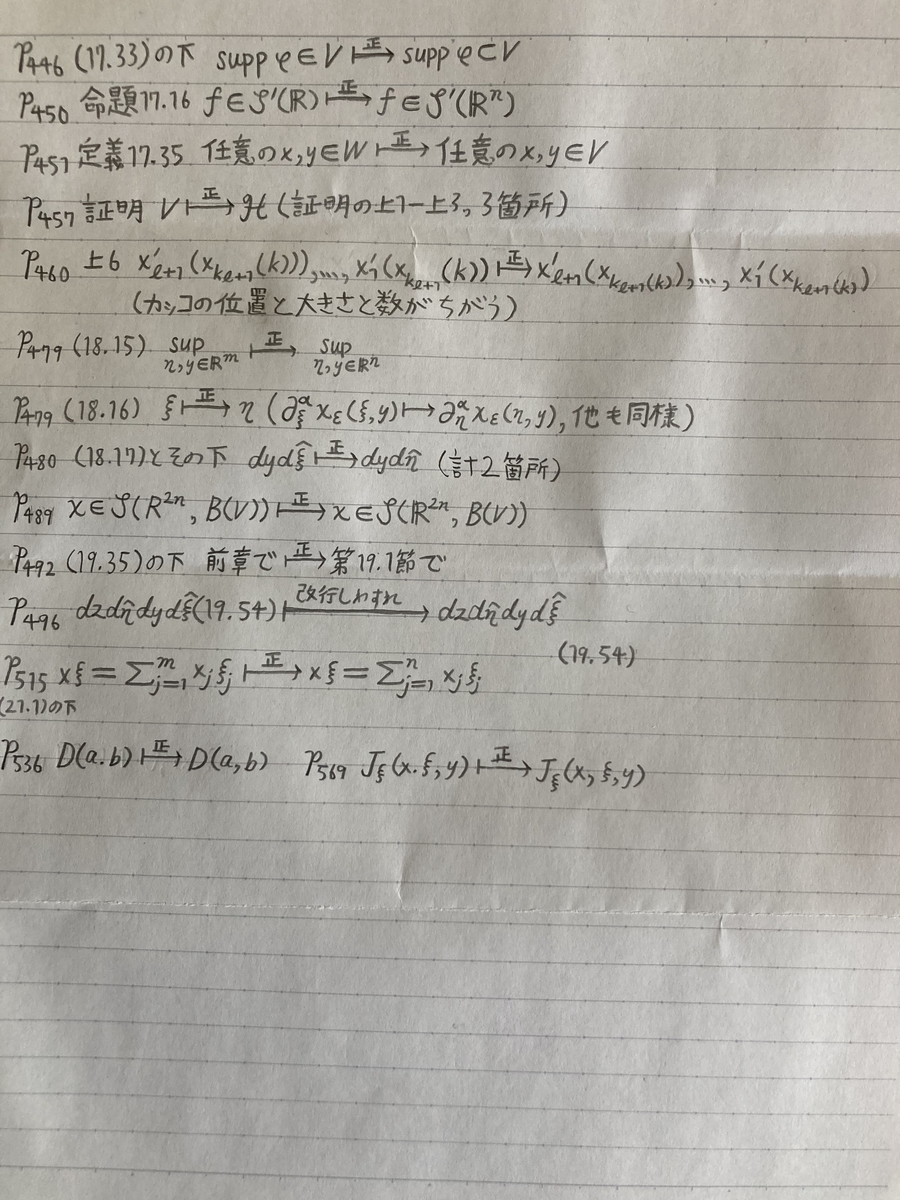 P446 (17.33)の下 supp φ∈V ⟼正 supp φ⊂V
P450 命題17.16 f∈𝒮'(R) ⟼正 f∈𝒮'(ℝⁿ)
P457 定義17.35 任意のx,y∈W ⟼正 任意のx,y∈V
P457 証明 V ⟼正 ℋ (証明の上1-上3, 3箇所)
P460 上6 x'ℓ+1(x_{kℓ+1}(k))),…, x'1(x_{kℓ+1}(k)) ⟼正 x'ℓ+1(x_{kℓ+1(k)}),…, x'1(x_{kℓ+1(k)})
(カッコの位置と大きさと数がちがう)
P479 (18.15) sup_{η,y∈ℝ^m} ⟼正 sup_{η,y∈ℝ^n}
P479 (18.16) ξ ⟼正 η (∂_ξ^α χ_ε(ξ,y) ⟼ ∂_η^α χ_ε(η,y), 他も同様)
P480 (18.17)とその下 dydξ̂ ⟼正 dydη̂ (計2箇所)
P489 χ∈𝒮(R²ⁿ, B(V)) ⟼正 χ∈𝒮(ℝ²ⁿ, B(V))
P492 (19.35)の下 前章で ⟼正 第19.1節で
P496 dzdη̂dydξ̂(19.54) ⟼改行しわすれ dzdη̂dydξ̂
(19.54)
P515 xξ=∑_{j=1}^m x_jξ_j ⟼正 xξ=∑_{j=1}^n x_jξ_j
(21.1)の下
P536 D(a.b) ⟼正 D(a,b) P569 J_ξ(x.ξ,y) ⟼正 J_ξ(x,ξ,y)